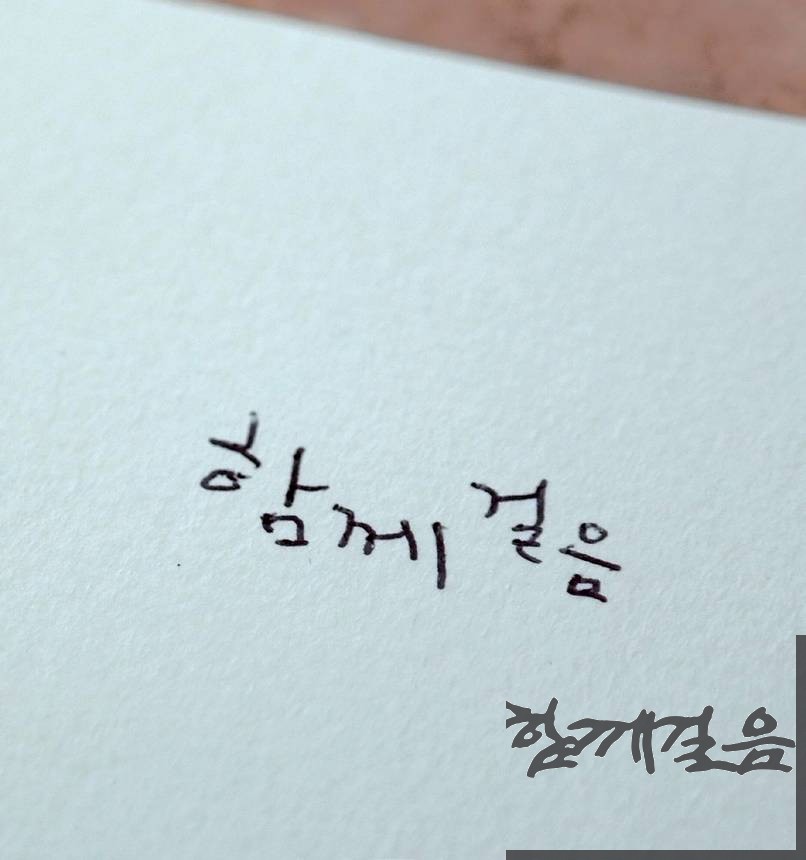 함께 걸음
함께걸음